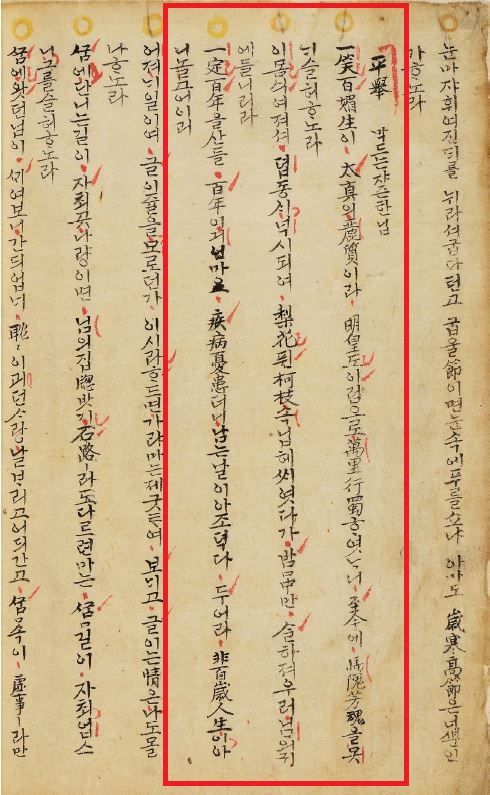 눈마쟈휘여진ᄃᆡ를 뉘라셔굽다턴고 굽을節이면눈속에푸를소냐 아마도 歲寒高節은너ᄲᅮᆫ인
가ᄒᆞ노라
平擧 막드는쟈즌한닙
一笑百媚生이 太真의麗質이라 明皇도이럼으로萬里行蜀ᄒᆞ엿ᄂᆞ니 至今에 馬嵬芳魂을못
ᄂᆡ슬허ᄒᆞ노라
이몸싀여져셔 졉동ᄉᆡ넉시되여 梨花퓐柯枝속닙헤ᄊᆞ엿다가 밤ᄯᅮᆼ만 슬하져우러님의귀
에들니리라
一定百年을산들 百年이긔 넘마오 疾病憂患더니남는날이아조덕다 두어라 非百歲人生이아
니놀고어이리
어져ᄂᆡ일이여 글일쥴을모로던가 이시라ᄒᆞ드면가랴마는제굿ᄐᆞ여 보ᄂᆡ고 글이는情은나도몰
나ᄒᆞ노라
ᄭᅮᆷ에다니는길이 자최곳나량이면 님의집窓밧기石路ㅣ라도다르련마는 ᄭᅮᆷ길이 자최업스
니그를슬허ᄒᆞ노라
ᄭᅮᆷ에왓던님이 ᄭᆡ여보니간듸업ᄂᆡ 耽耽이괴던ᄉᆞ랑날ᄇᆞ리고어듸간고 ᄭᅮᆷ속이 虛事ㅣ라만